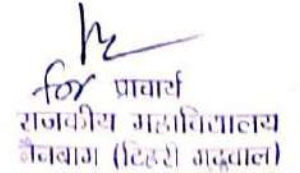 for प्राचार्य
राजकीय महाविद्यालय
नैनबाग (टिहरी गढ़वाल)